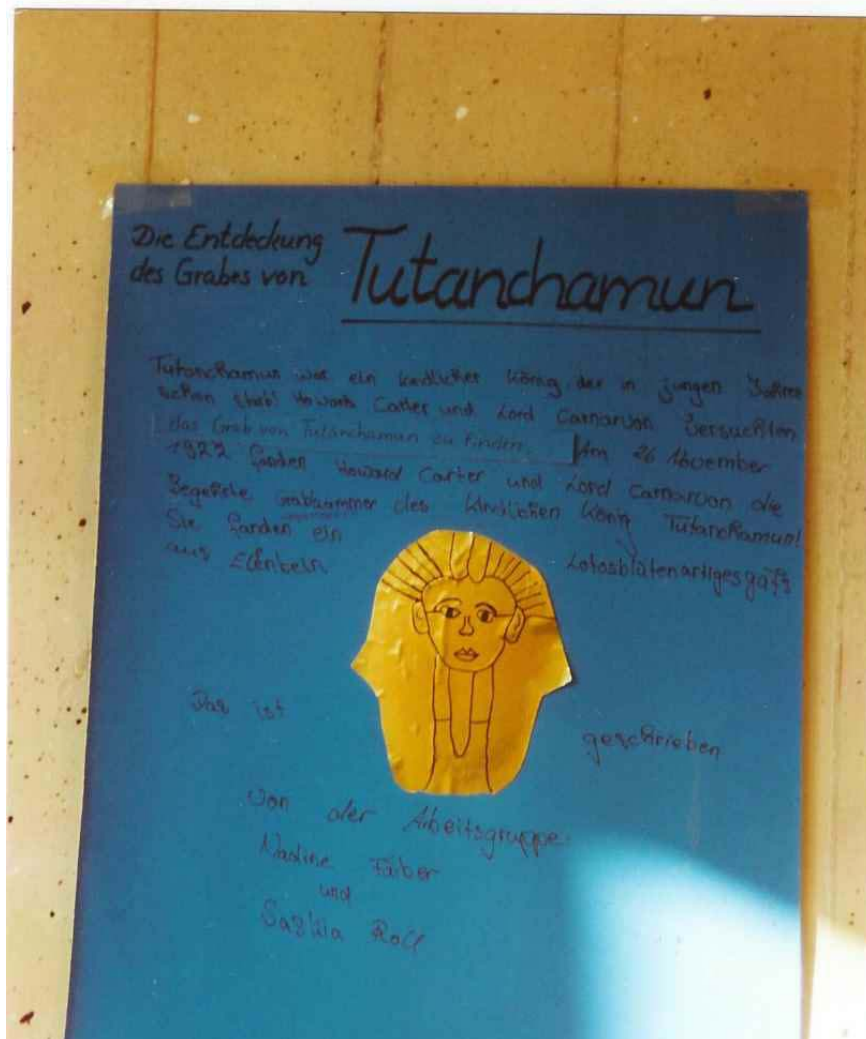 Die Entdeckung
des Grabes von
Tutanchamun
Tutanchamun war ein kindlicher König, der in jungen Jahren
schon starb! Howard Carter und Lord Carnarvon versuchten
das Grab von Tutanchamun zu finden. Am 26 November
1922 fanden Howard Carter und Lord Carnarvon die
Begehrte Grabkammer des kindlichen König Tutanchamun!
Sie fanden ein Lotosblütenartiges
aus Elfenbein
Das ist geschrieben
von der Arbeitsgruppe:
Nadine Färber
und
Saskia Roll